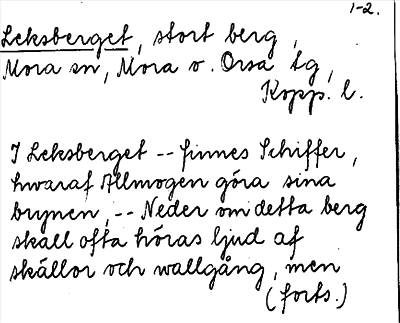 1-2.
Leksberget, stort berg,
Mora sn, Mora o. Orsa tg,
Kopp. l.
I Leksberget -- finnes Schiffer,
hwaraf Allmogen göra sina
brynen, -- Neder om detta berg
skall ofta höras ljud af
skällor och wallgång, men
(forts.)